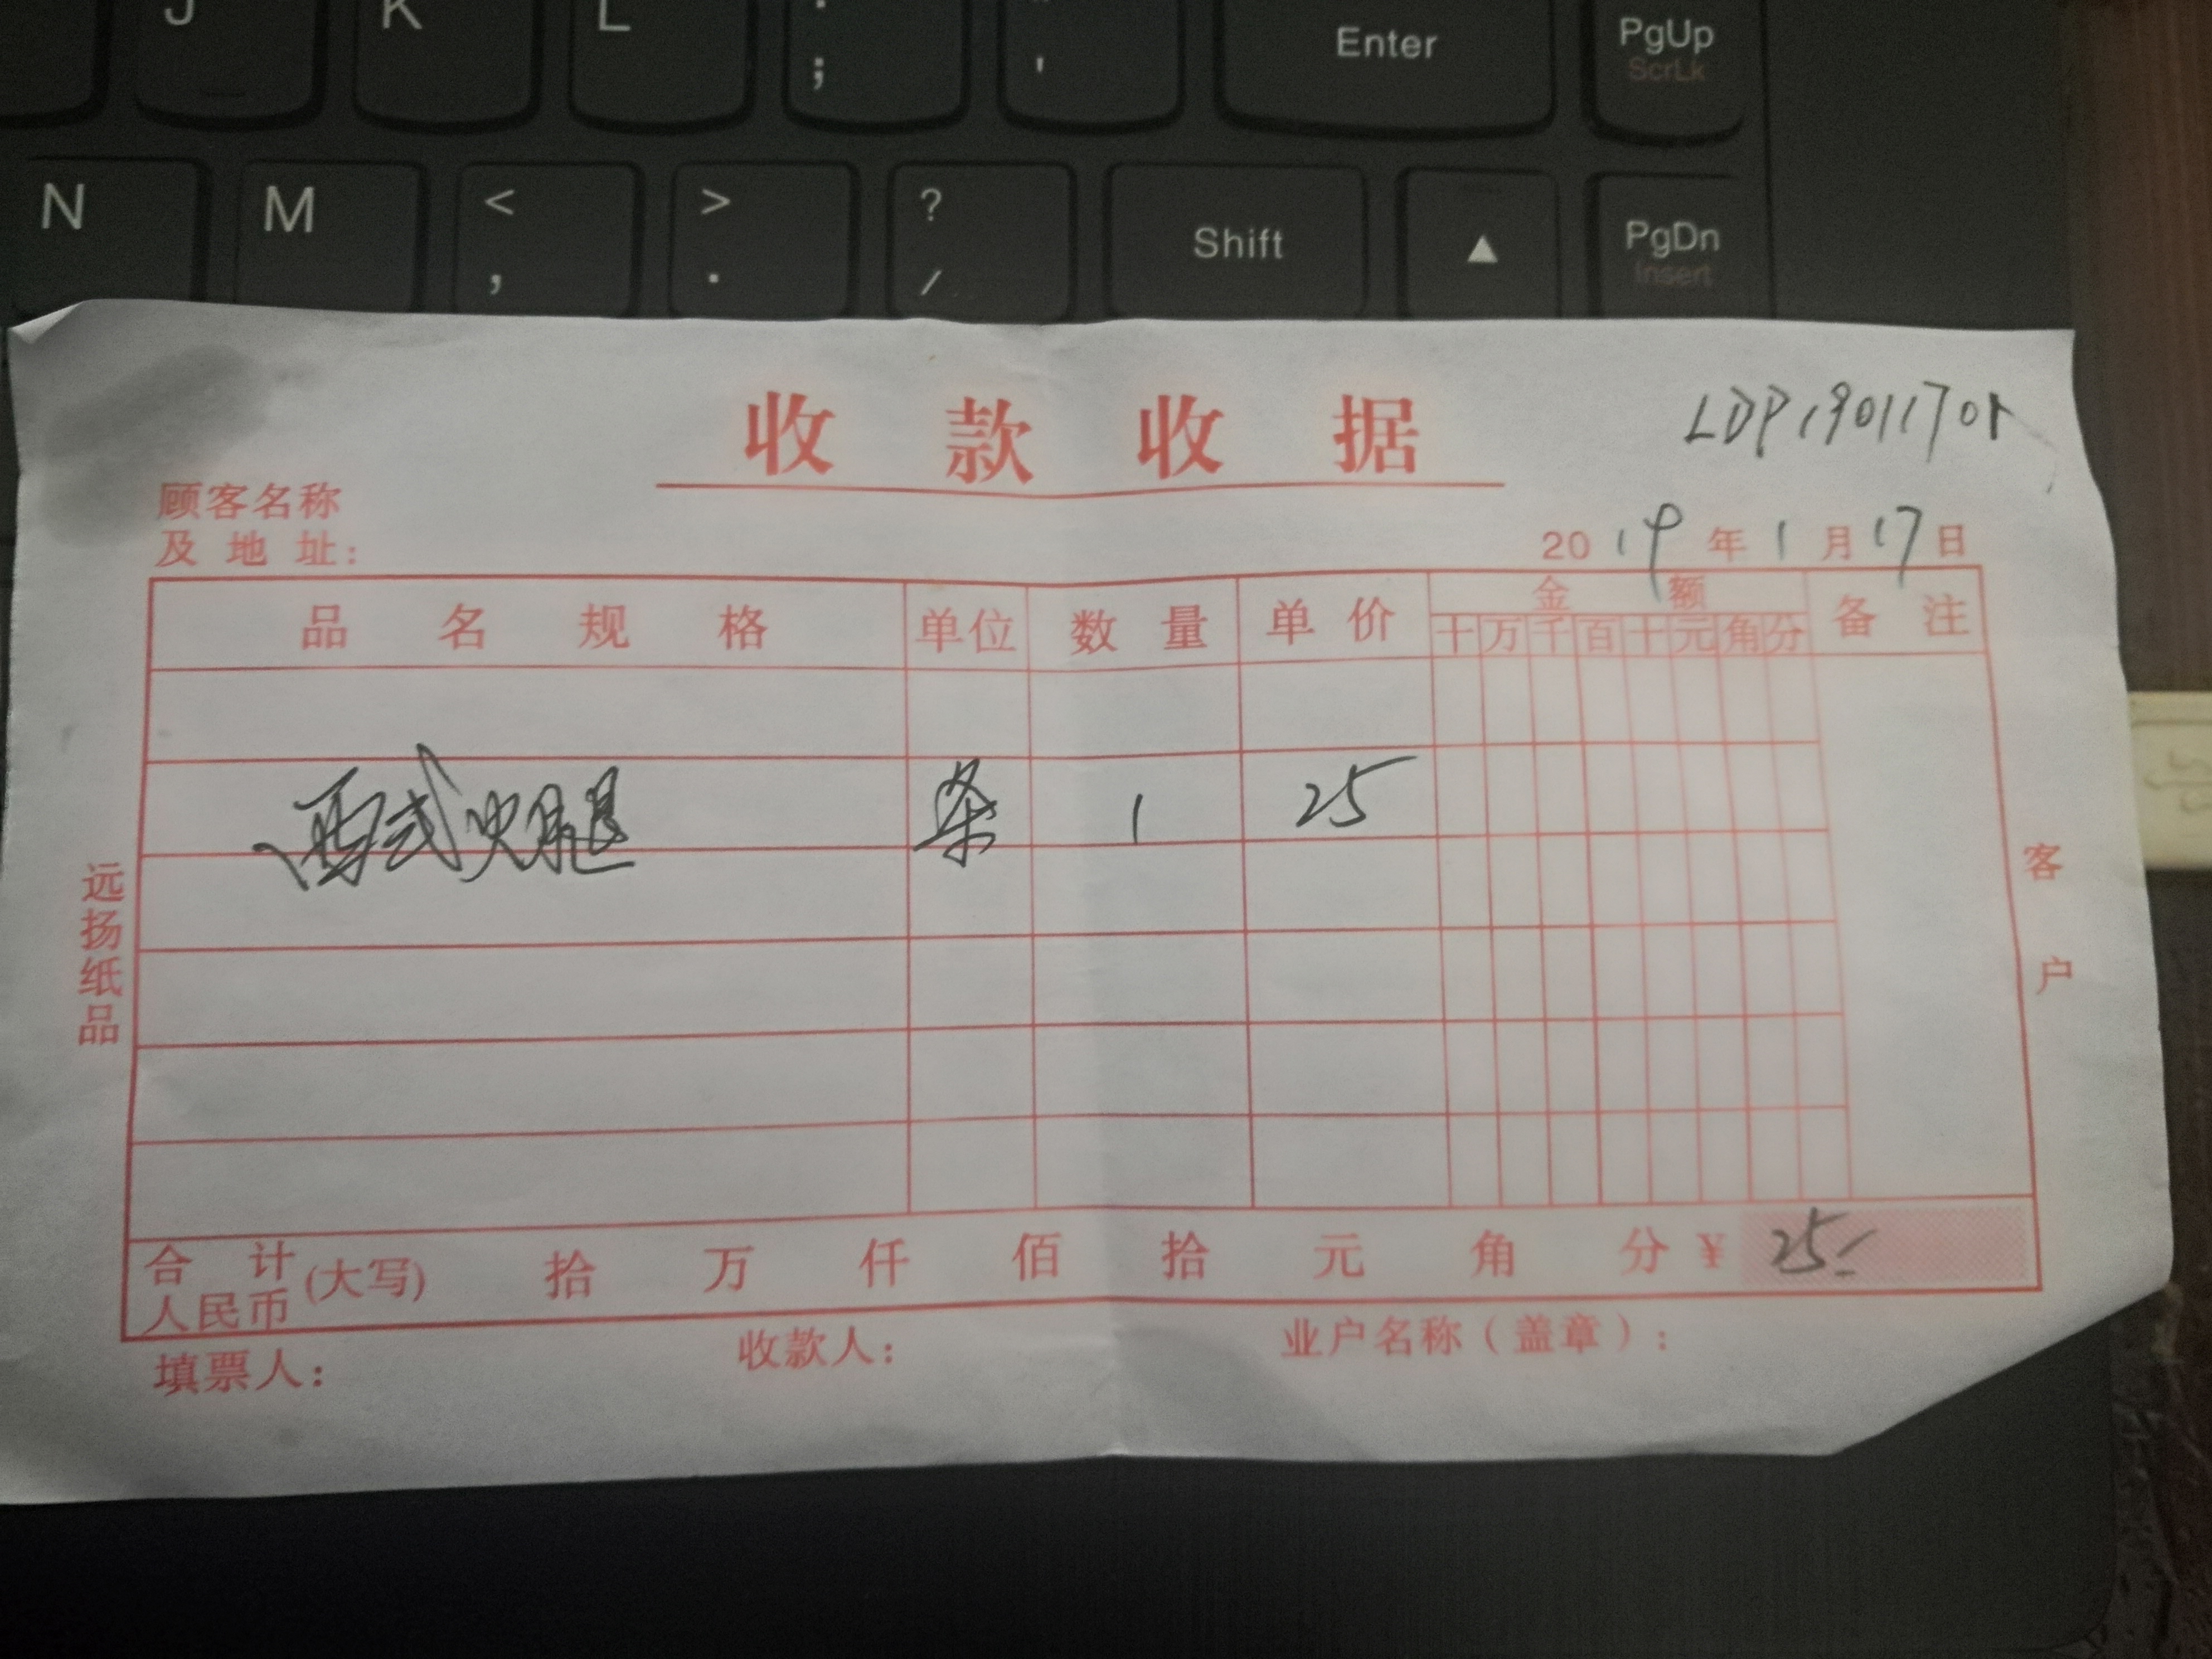 J K L : ; " ' Enter PgUp
ScrLk
N M < , > . ? / Shift ▲ PgDn
Insert
收款收据
LDP19011701
顾客名称
及地址:
2019年1月17日
品名规格 单位 数量 单价 金额 备注
十万千百十元角分
西式火腿 条 1 25
远扬纸品
客户
合计
人民币
(大写) 拾 万 仟 佰 拾 元 角 分 ¥ 25-
填票人: 收款人: 业户名称(盖章):